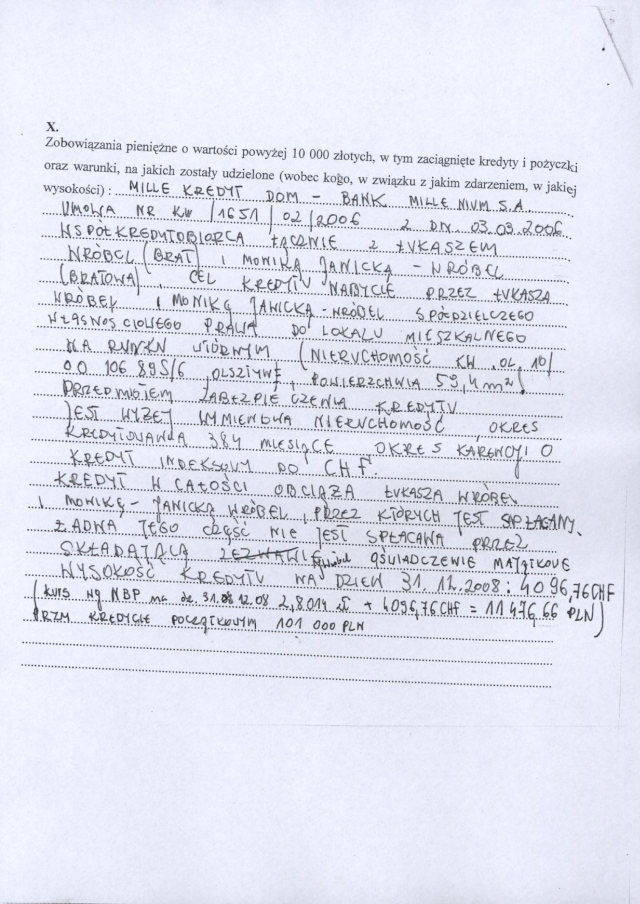 X.
Zobowiązania pieniężne o wartości powyżej 10 000 złotych, w tym zaciągnięte kredyty i pożyczki
oraz warunki, na jakich zostały udzielone (wobec kogo, w związku z jakim zdarzeniem, w jakiej
wysokości) : MILLE KREDYT DOM – BANK MILLENIVM S.A.
UMOWA NR KW /1651/02/2006 Z DN. 03.03.2006
WSPÓŁKREDYTOBIORCA ŁĄCZNIE Z ŁVKASZEM
WRÓBEL (BRAT) I MONIKĄ JANICKĄ – WRÓBEL
(BRATOWA), CEL KREDYTV NABYCIE PRZEZ ŁVKASZA
WRÓBEL I MONIKĘ JANICKĄ – WRÓBEL SPÓŁDZIELCZEGO
WŁASNOŚCIOWEGO PRAWA DO LOKALU MIESZKALNEGO
NA RYNKV WTÓRNYM (NIERVCHOMOŚĆ KW OL 10/
00 106 895/6 OLSZTYNE, POWIERZCHNIA 59,4 m²)
PRZEDMIOTEM ZABEZPIECZENIA KREDYTV
JEST WYŻEJ WYMIENIONA NIERVCHOMOŚĆ OKRES
KREDYTOWANIA 384 MIESIĄCE OKRES KARENCJI 0
KREDYT INDEKSOWY DO CHF.
KREDYT W CAŁOŚCI OBCIĄŻA ŁVKASZA WRÓBEL
I MONIKĘ – JANICKĄ WRÓBEL, PRZEZ KTÓRYCH JEST SPŁACANY.
ŻADNA JEGO CZĘŚĆ NIE JEST SPŁACANA PRZEZ
SKŁADAJĄCĄ OŚWIADCZENIE MAJĄTKOVE
WYSOKOŚĆ KREDYTV NA DZIEŃ 31.12.2008: 4096,76CHF
(kurs wg NBP na dz. 31.12.08 2,8014 zł + 4096,76CHF = 11476,66 PLN)
PRZY KREDYCIE POCZĄTKOWYM 101 000 PLN